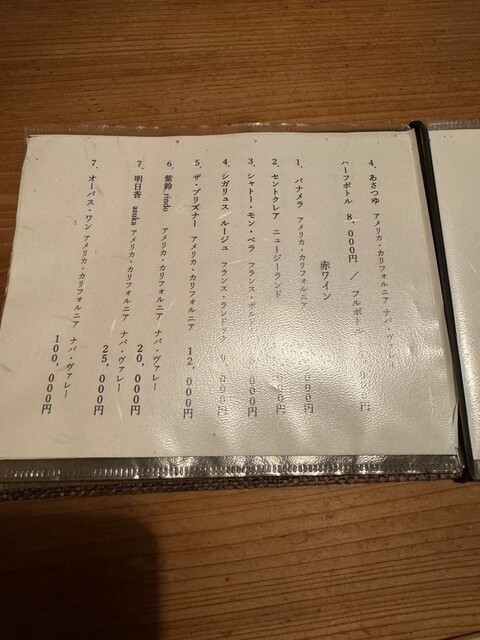 4. あさつゆ アメリカ・カリフォルニア ナパ・ヴァレー
ハーフボトル 8,000円 / フルボトル 000円
赤ワイン
1. パナメラ アメリカ・カリフォルニア 000円
2. セントクレア ニュージーランド 000円
3. シャトー・モン・ペラ フランス・ボルドー 000円
4. シガリュス・ルージュ フランス・ランドック 9,000円
5. ザ・プリズナー アメリカ・カリフォルニア 12,000円
6. 紫鈴 rindo アメリカ・カリフォルニア ナパ・ヴァレー 20,000円
7. 明日香 asuka アメリカ・カリフォルニア ナパ・ヴァレー 25,000円
7. オーパス・ワン アメリカ・カリフォルニア ナパ・ヴァレー 100,000円